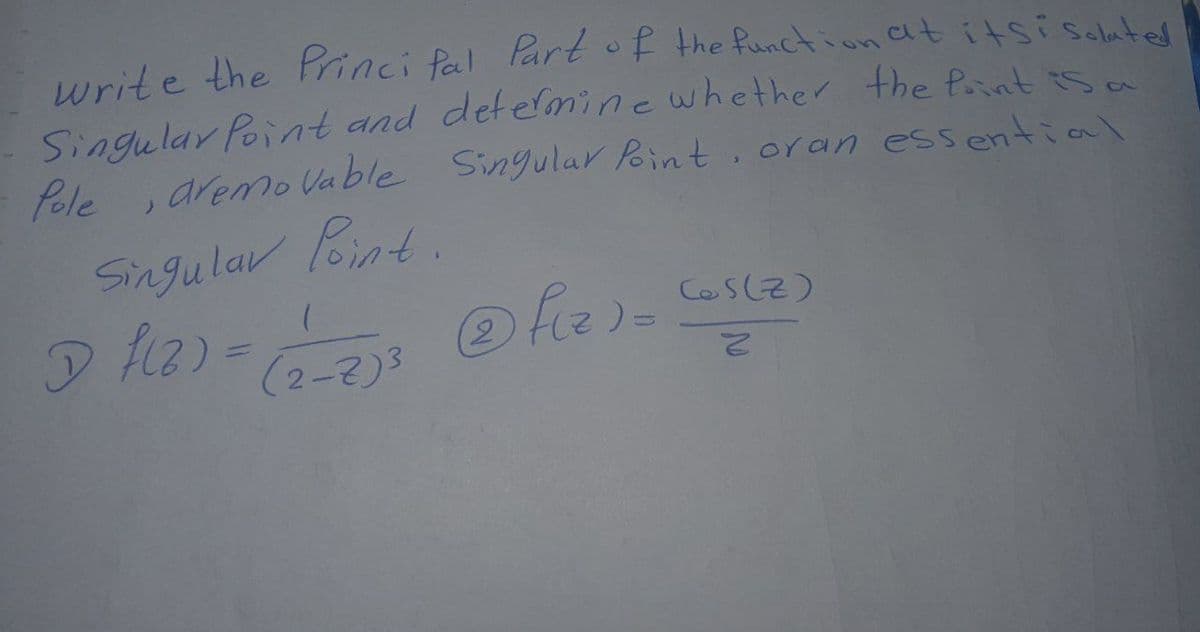 write the Principal Part of the function at its isolated
Singular Point and determine whether the Point is a
Pole , a removable Singular Point , or an essential
Singular Point .
① f(z) = 1/(2-z)³ ② f(z) = Cos(z)/z